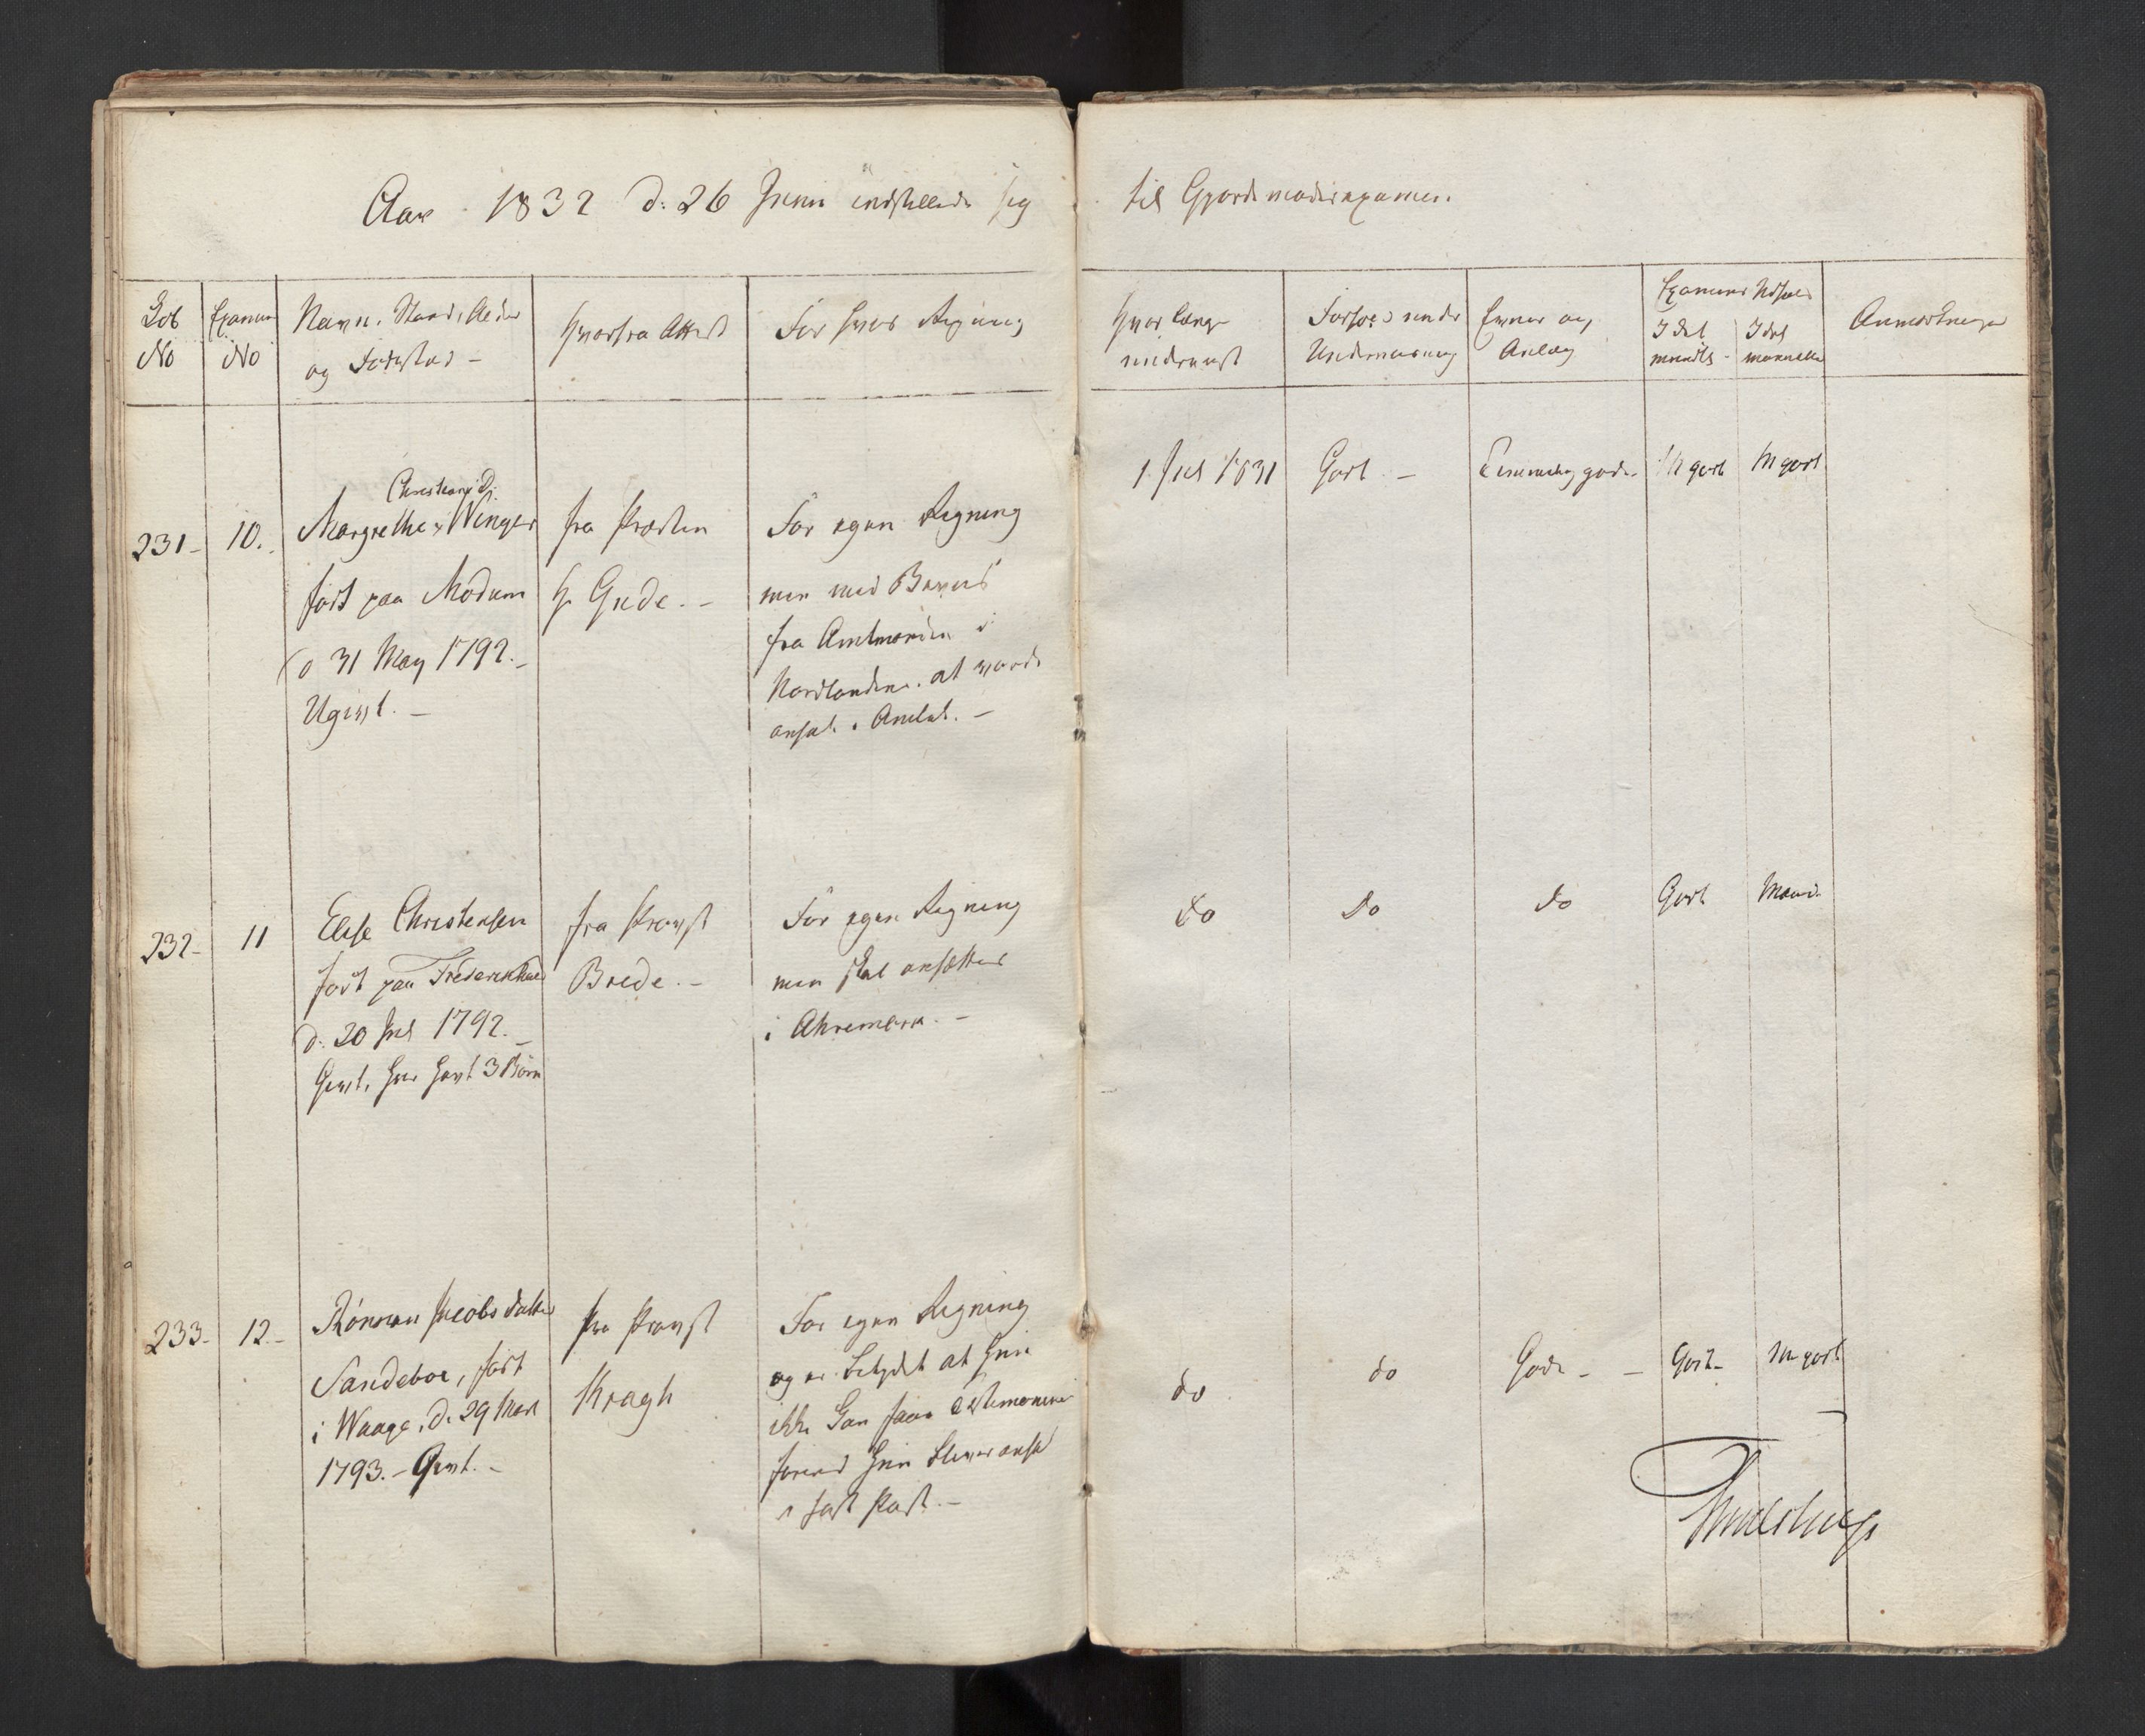 Aar 1832 d: 26 Juni indstillede sig til Gjordemoderexamen.
Løb No
Examen No
Navn, Stand, Alder og Fødestad -
Hvorfra Attest
For hvis Regning
Hvor længe underviist
Forhold under Underviisning
Evner og Anlæg
Examens Udfald
I det mundtl -
I det manuelle
Anmærkninger
231 -
10.
Christians D.
Margrethe Winger
født paa Modum
d 31 May 1792. -
Ugivt. -
fra Præsten
H Gude. -
For egen Regning
men med Beviis
fra Amtmanden i
Nordlandene. at vorde
ansat i Amtet. -
1 Juli 1831
Godt -
gode
M godt
M godt
232 -
11
Elise Christensen
født paa Frederikshald
d. 20 Juli 1792. -
Givt, har havt 3 Børn
fra Provst
Brede. -
For egen Regning
men skal ansættes
i Ahremark. -
do
do
do
Godt
Maad.
233 -
12 -
Rønnau Jacobsdatter
Sandeboe, født
i Waage, d. 29 Mart
1793. - Givt. -
fra Provst
Kragh
For egen Regning
og er betydet at hun
ikke kan faae Testimonium
førend hun bliver ansat
i fast Post. -
do
do
Gode - -
Godt -
M godt